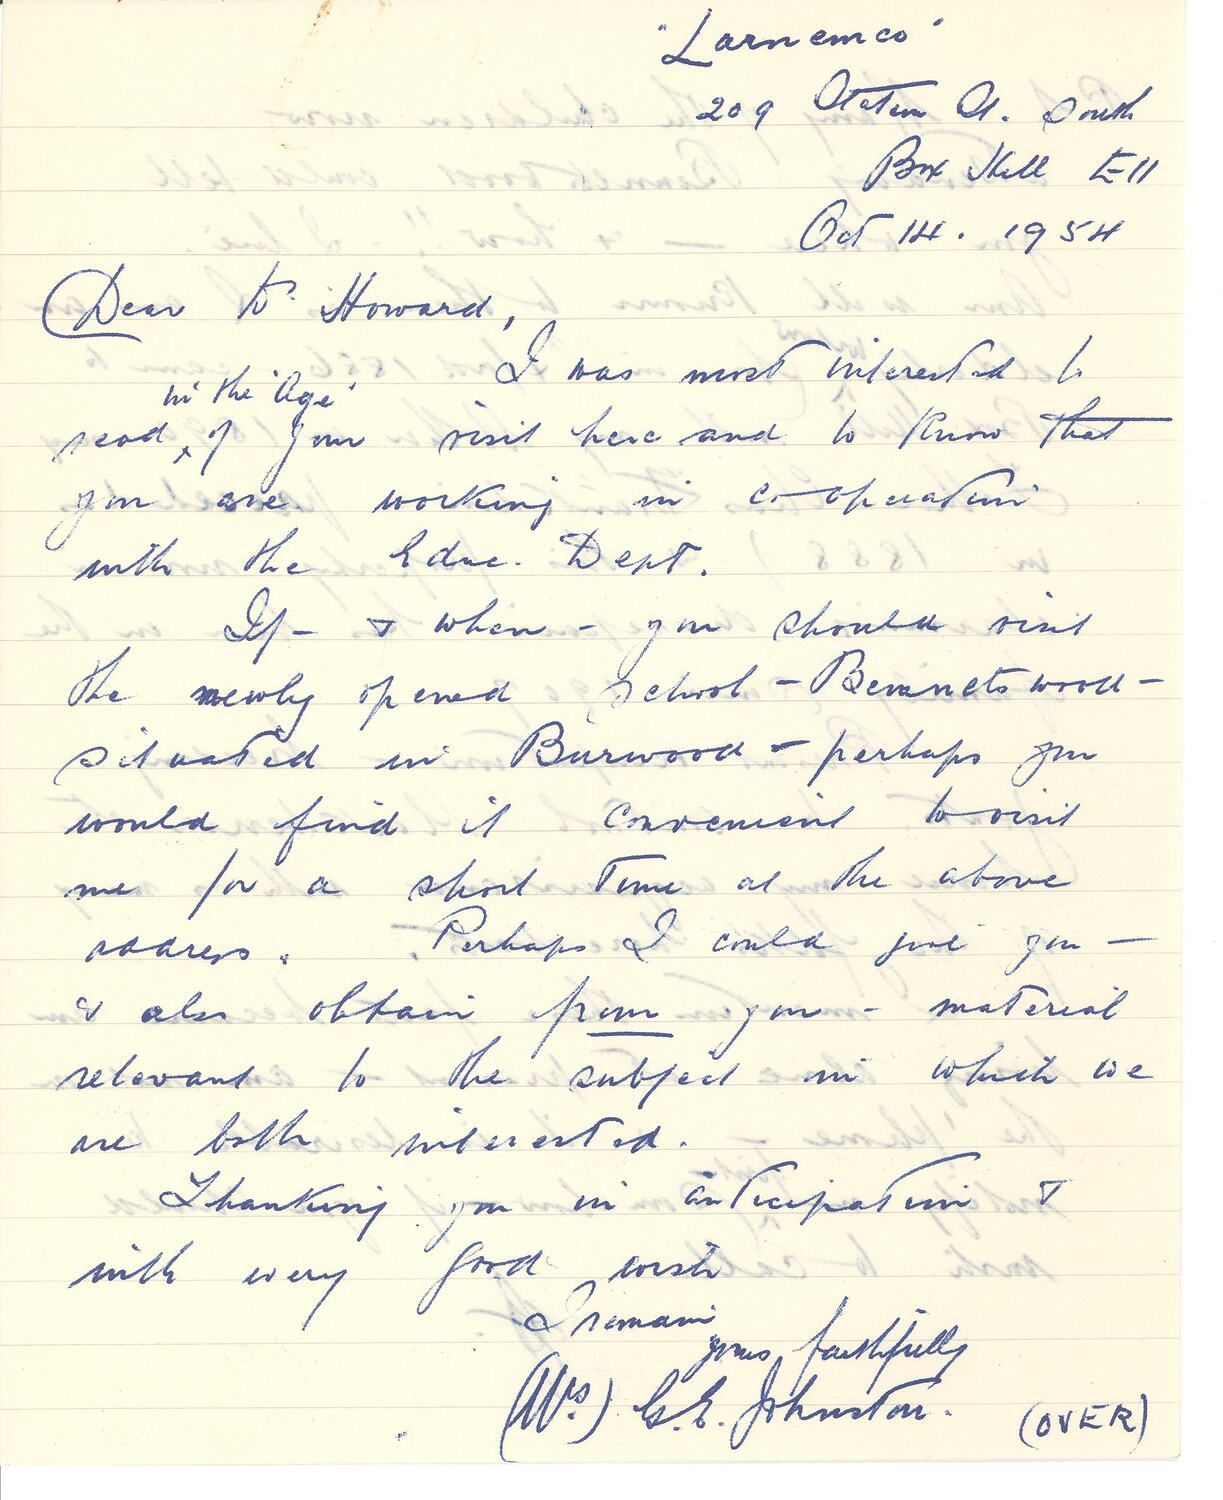 "Larnemco"
209 Station St. South
Box Hill E11
Oct 14. 1954
Dear Dr Howard,
I was most interested to
in the 'Age'
read of your visit here and to know that
you are working in co-operation
with the Educ. Dept.
If - & when - you should visit
the newly opened school - Bennetswood -
situated in Burwood - perhaps you
would find it convenient to visit
me for a short time at the above
address. Perhaps I could give you -
& also obtain from you - material
relevant to the subject in which we
are both interested.
Thanking you in anticipation &
with every good wish
I remain
yours faithfully
(Mrs.) G. E. Johnston.
(OVER)